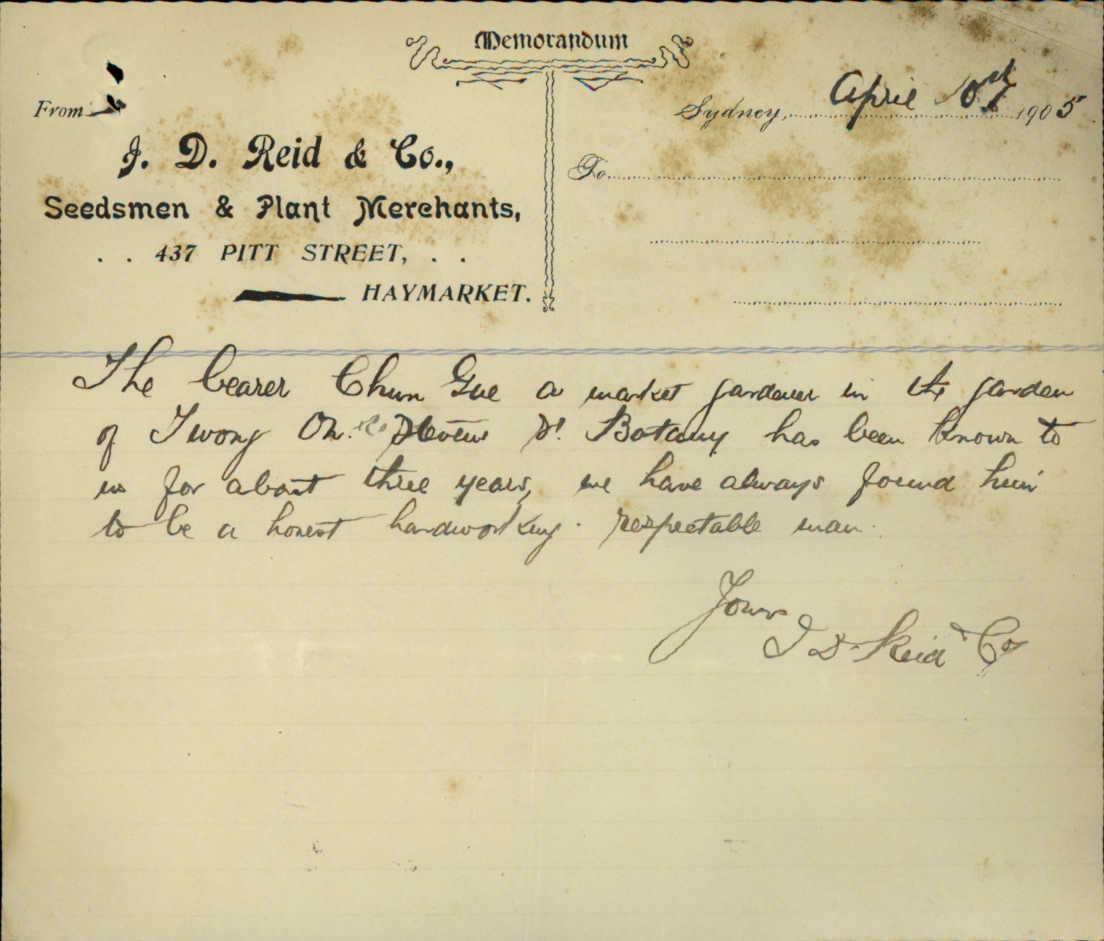 Memorandum
From
Sydney, April 10th 1905
J. D. Reid & Co.,
To
Seedsmen & Plant Merchants,
. . 437 PITT STREET, . .
HAYMARKET.
The bearer Chun Gue a market gardener in the garden
of On Stevens St Botany has been known to
us for about three years, we have always found him
to be a honest hardworking respectable man.
Yours
J D Reid & Co